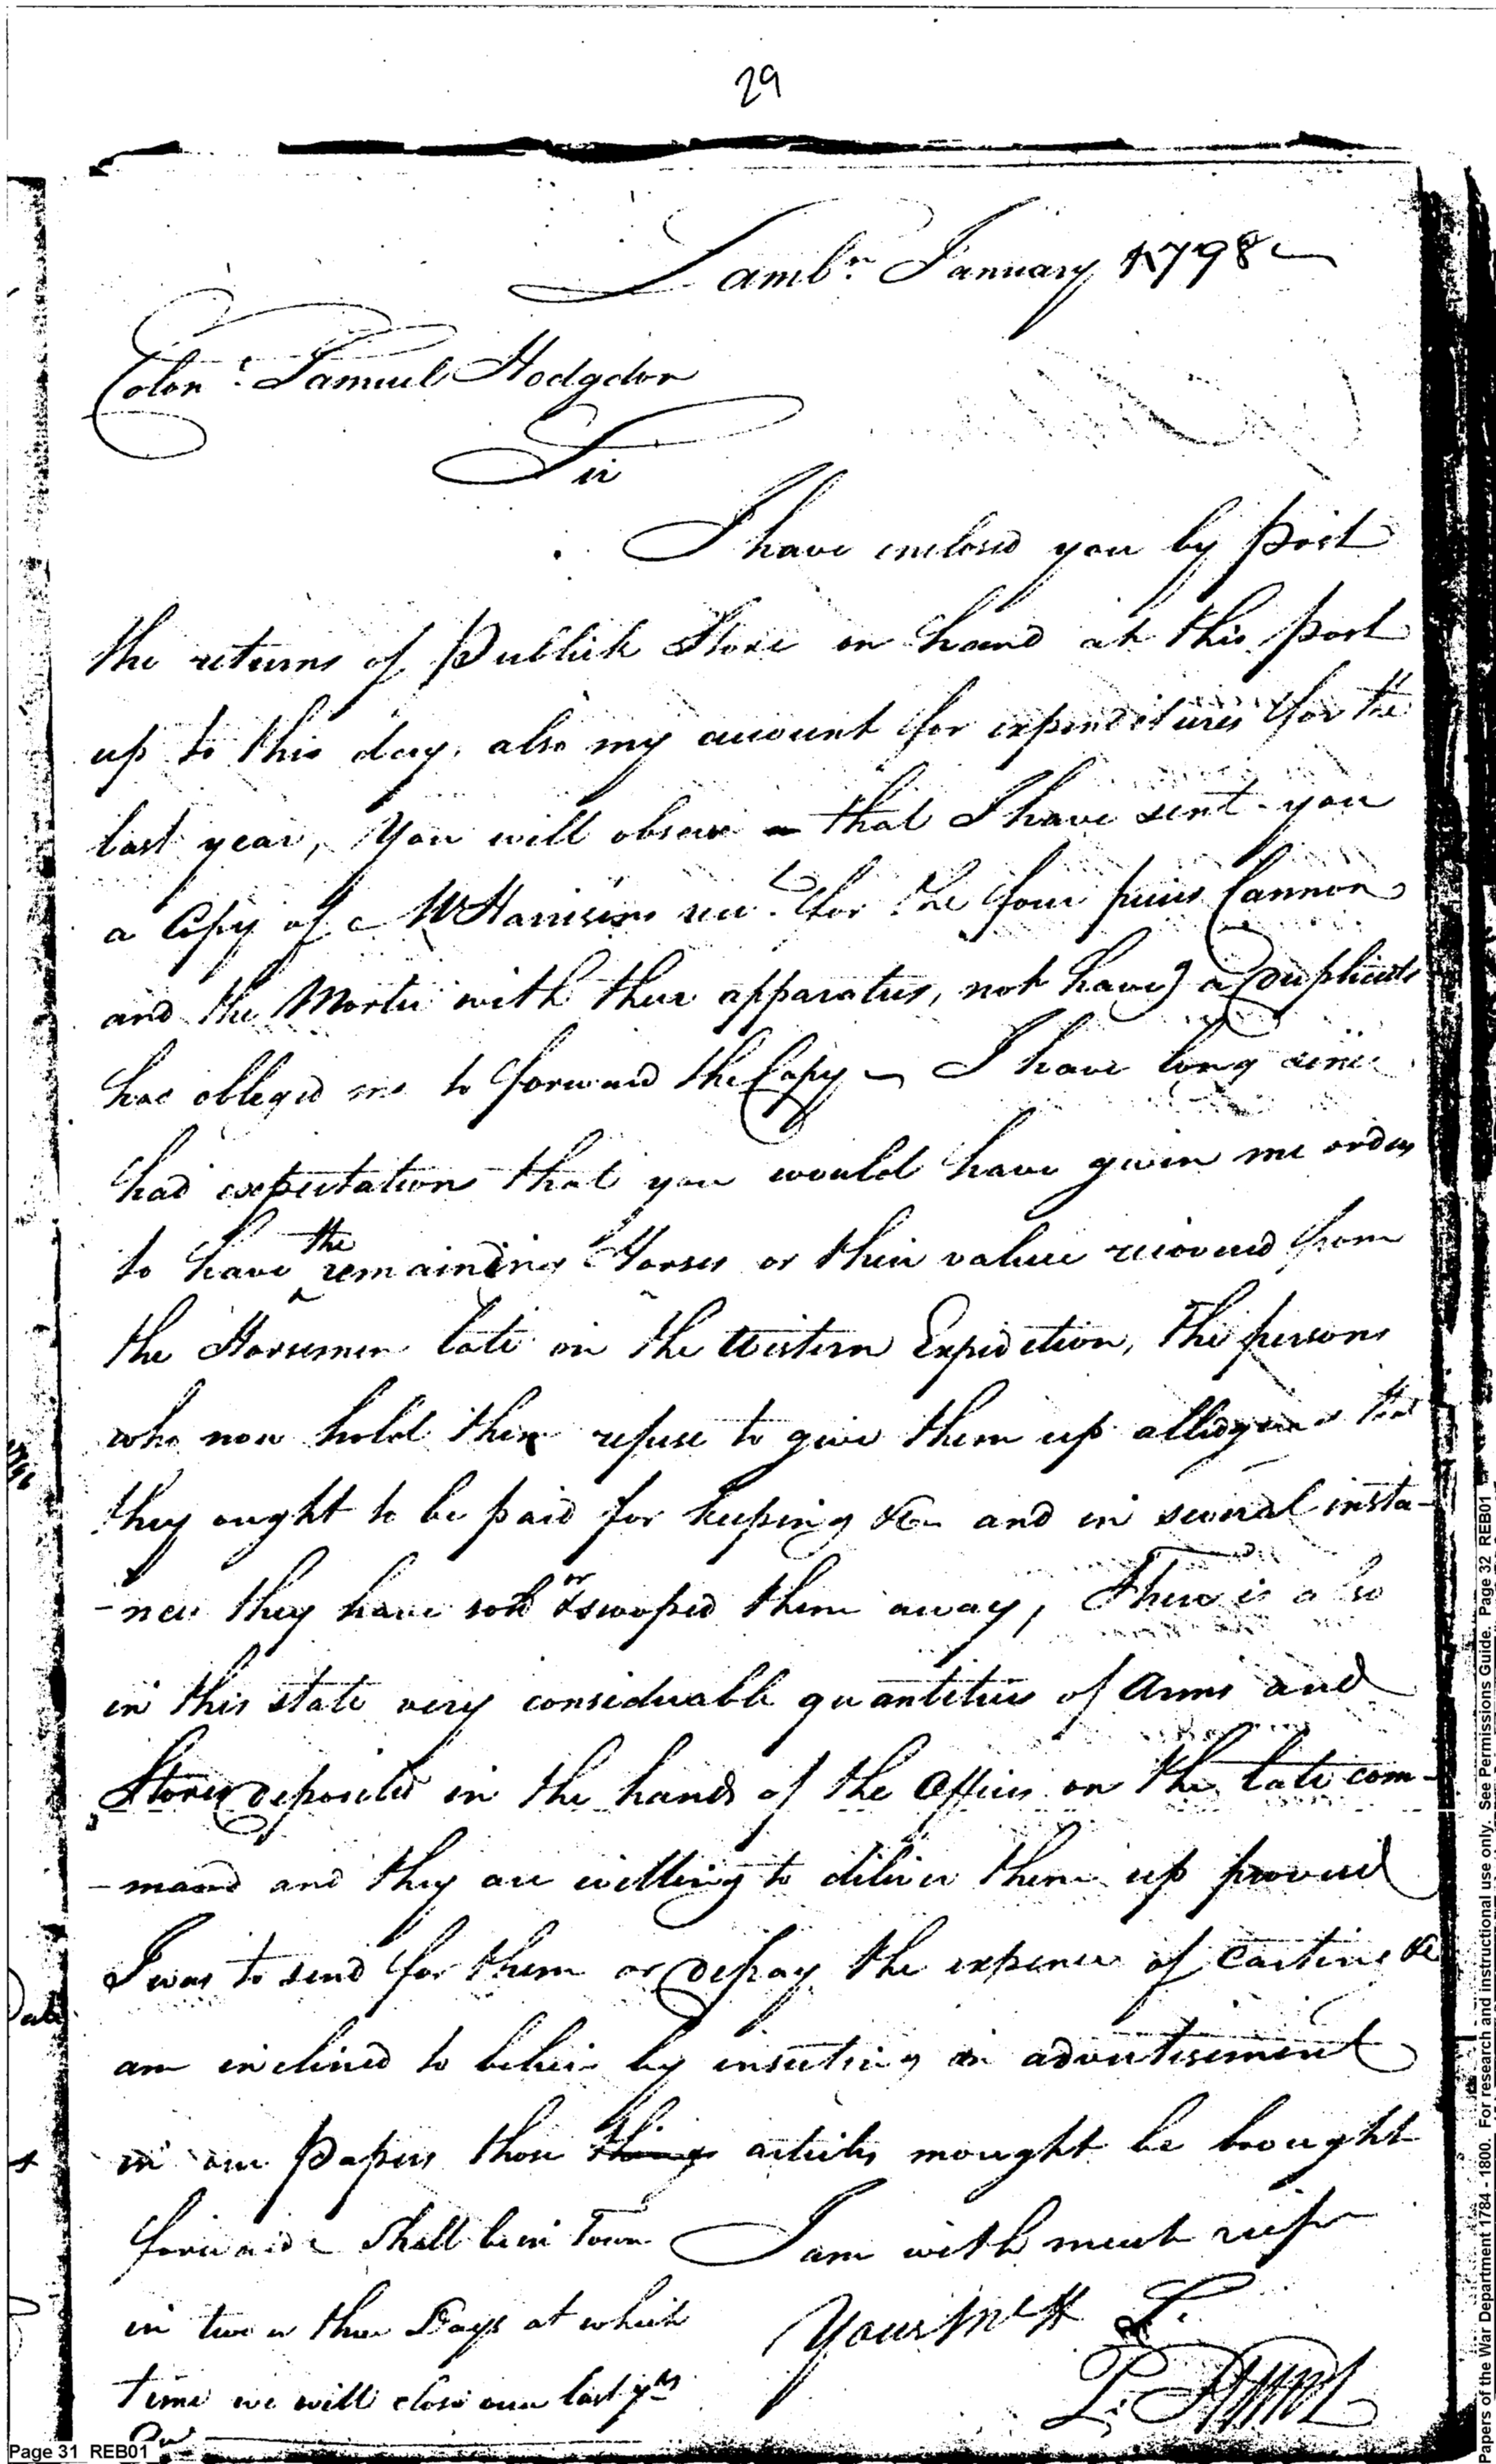 29
Lambr. January 1798
Colonl. Samuel Hodgdon
Sir
I have enclosed you by post
the returns of Publick Store on hand at this post
up to this day, also my account for expenditures for the
last year, You will observe that I have sent you
a Copy of Mr Harrisons rect. for the four pieces Cannon
and the Morter with their apparatus, not haveg a duplicate
has obleged me to forward the Copy – I have long sence
had expectation that you would have given me orders
to have the remaining Horses or their value recovered from
the Horsemen late on the Western Expedition, The persons
who now hold them refuse to give them up alledgeing that
they ought to be paid for keeping &c and in several insta-
-nces they have sold or swoped them away, There is also
in this state very considerable quantities of Arms and
Stores deposited in the hands of the Officers on the late com-
-mand and they are willing to deliver them up provied
I was to send for them or defray the expence of Carting &c
am inclined to beleive by inserting an advertisement
in our Papers those things articles mought be brought
forward – Shall be in Town
in two or three Days at which
time we will close our last yrs
I am with much resp
Your
Page 31 REB01
Papers of the War Department 1784 - 1800. For research and instructional use only. See Permissions Guide. Page 32 REB01